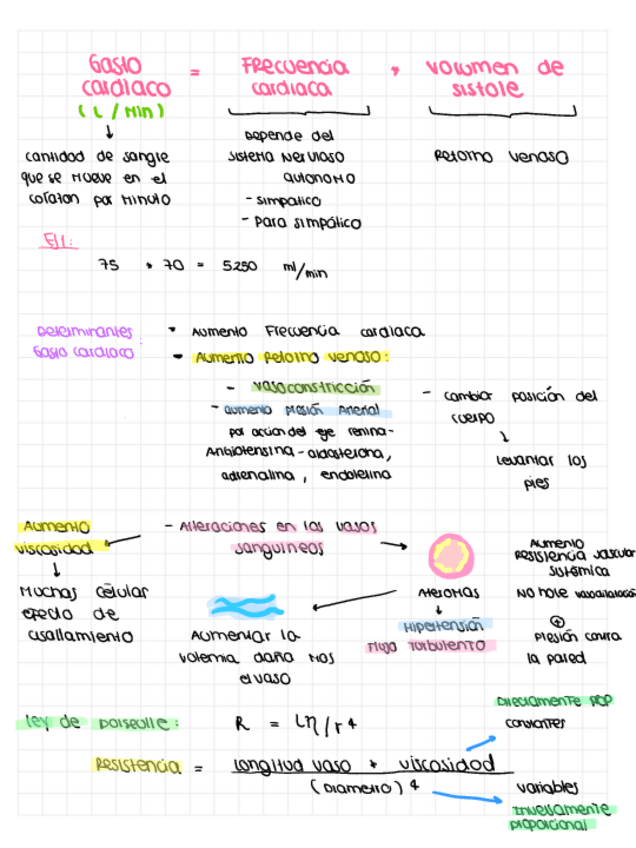 Gasto = Frecuencia * volumen de
cardiaco cardiaca sistole
(L/min)
cantidad de sangre
que se mueve en el
corazon por minuto
Depende del
sistema nervioso
autonomo
- simpatico
- Para simpático
Retorno venoso
EJ1:
75 * 70 = 5250 ml/min
Determinantes
Gasto cardiaco :
• Aumento Frecuencia cardiaca
• Aumento Retorno venoso:
- vasoconstricción
- aumento presión Arterial
por accion del eje renina-
Angiotensina-aldosterona,
adrenalina, endotelina
- cambiar posición del
cuerpo
Levantar los
pies
- Alteraciones en los vasos
sanguíneos
Aumento
viscosidad
Muchas célular
efecto de
cisallamiento
Aumentar la
volemia daña mas
el vaso
Ateromas
Hipertensión
Flujo Turbulento
Aumento
Resistencia vascular
sistémica
No hole vasodilatación
⊕
Presión contra
la pared
Ley de poiseulle: R = Lη/r4
Resistencia = longitud vaso * viscosidad
(Diametro) 4
Directamente PROP
constantes
variables
Inversamente
proporcional